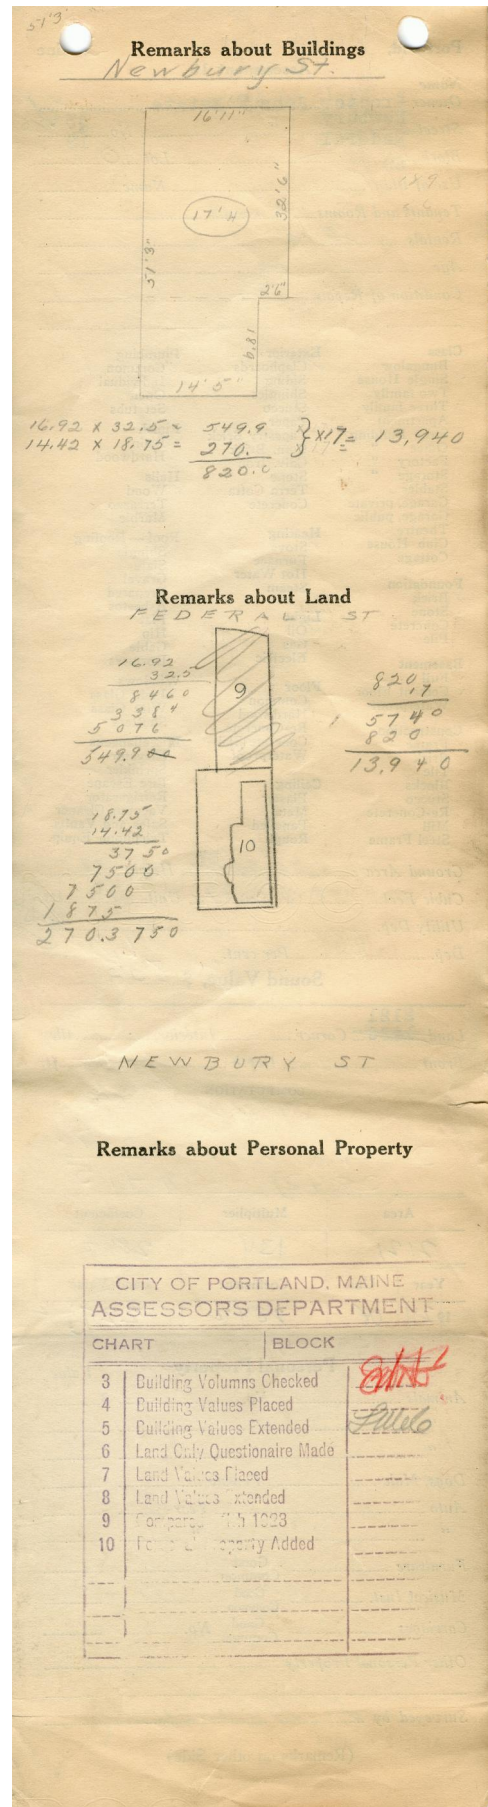 51'3"
Remarks about Buildings
Newbury St.
16'11"
32'6"
17'4
51'3"
2'6"
18'9
14'5"
16.92 x 32.5 = 549.9
14.42 x 18.75 = 270.
x17 = 13,940
820.0
Remarks about Land
FEDERAL ST
16.92
32.5
8460
3384
5076
549.900
9
820
17
5740
820
13,940
18.75
14.42
3750
7500
7500
1875
270.3750
10
NEWBURY ST
Remarks about Personal Property
CITY OF PORTLAND, MAINE
ASSESSORS DEPARTMENT
CHART BLOCK
3 Building Volumns Checked
4 Building Values Placed
5 Building Values Extended
6 Land Only Questionaire Made
7 Land Values Placed
8 Land Values Extended
9 1923
10 Property Added